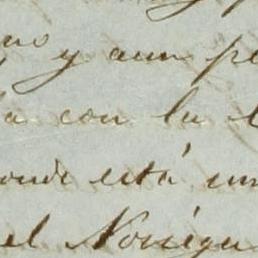 y aun pe
a con la
onde está un
el Noriega